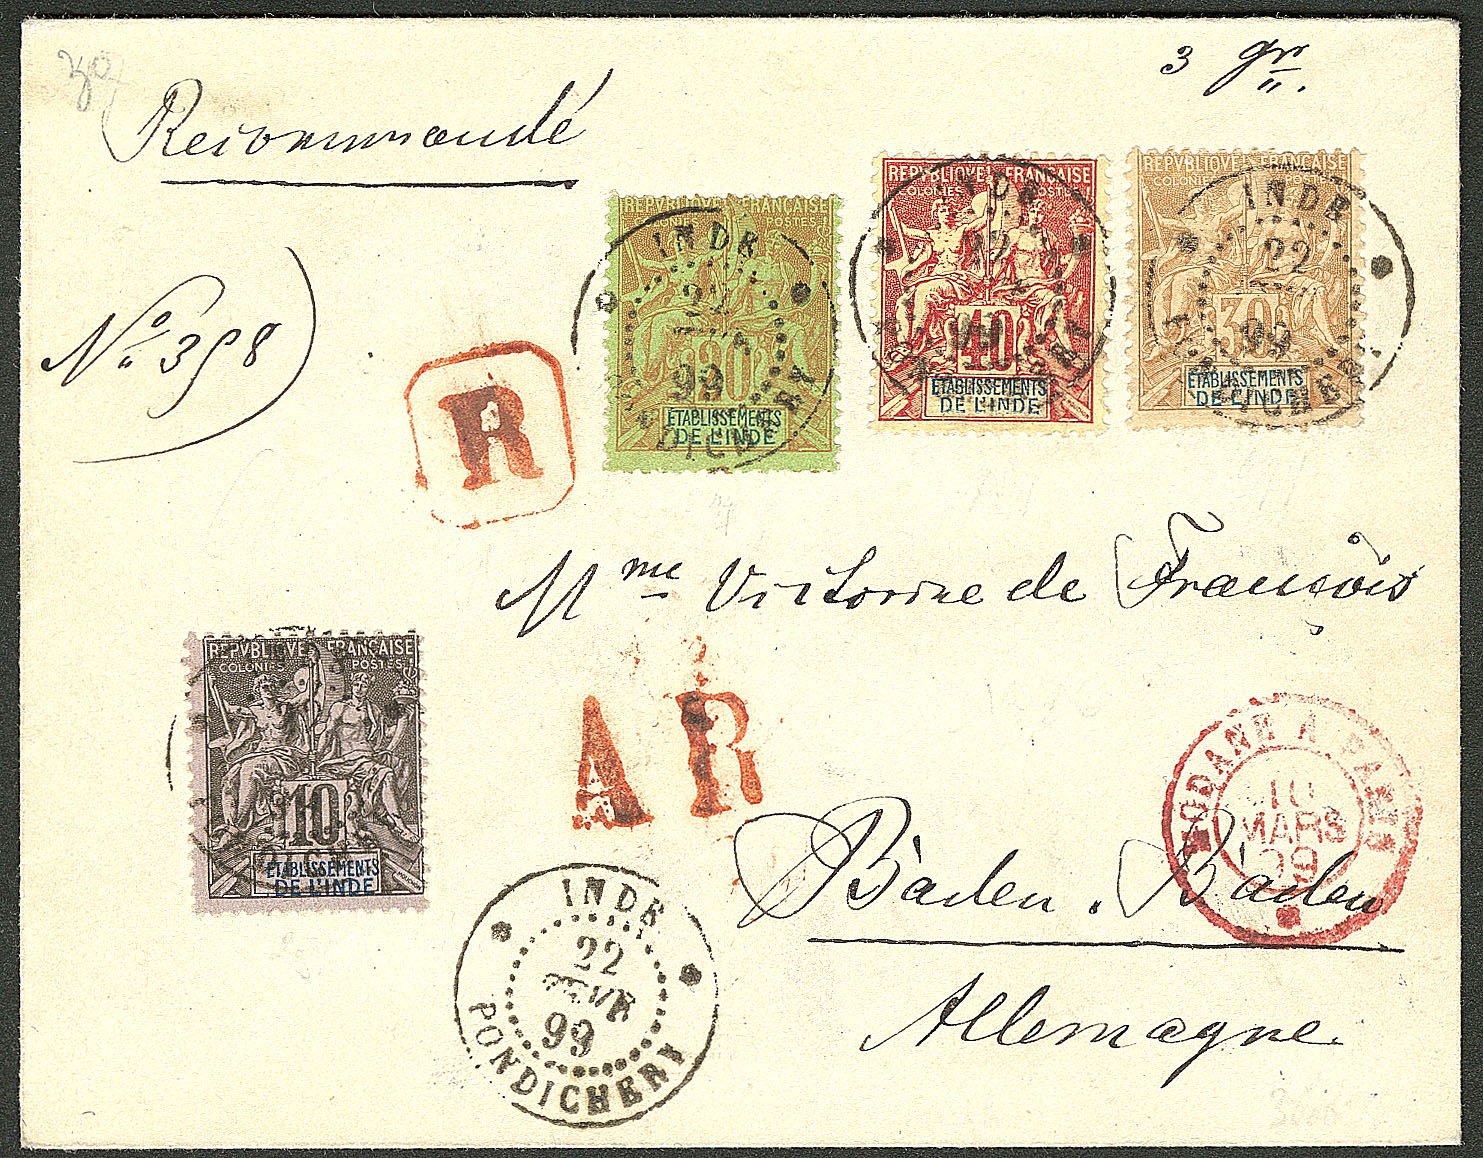 3 gr.
Recommandé
No 398
R
REPVBLIQVE FRANÇAISE
COLONIES POSTES
20
ÉTABLISSEMENTS
DE L'INDE
INDE
22
99
REPVBLIQVE FRANÇAISE
COLONIES POSTES
40
ÉTABLISSEMENTS
DE L'INDE
INDE
22
REPVBLIQVE FRANÇAISE
COLONIES
30
ÉTABLISSEMENTS
DE L'INDE
INDE
22
99
Mme Victorine de François
REPVBLIQVE FRANÇAISE
COLONIES POSTES
10
ÉTABLISSEMENTS
DE L'INDE
AR
MODANE A PARIS
10
MARS
99
Baden. Baden
Allemagne.
INDE
22
FEVR
99
PONDICHERY